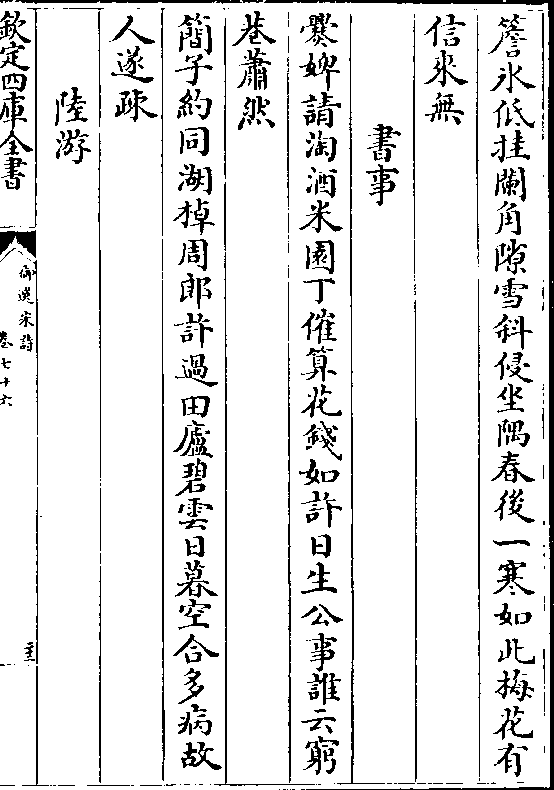 簷氷低挂闌角隙雪斜侵坐隅春後一寒如此梅花有
信來無
書事
爨婢請淘酒米園丁催算花錢如許日生公事誰云窮
巷蕭然
簡子約同湖棹周郎許過田廬碧雲日暮空合多病故
人遂疎
陸游
欽定四庫全書
御選宋詩
卷七十六